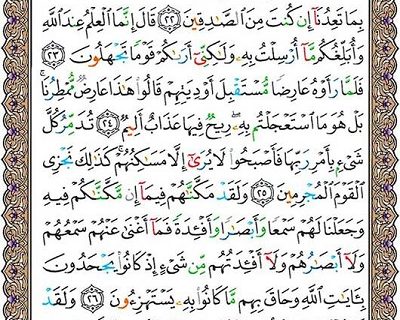 بِمَا تَعِدُنَآ إِن كُنتَ مِنَ ٱلصَّـٰدِقِينَ ٢٢ قَالَ إِنَّمَا ٱلْعِلْمُ عِندَ ٱللَّهِ
وَأُبَلِّغُكُم مَّآ أُرْسِلْتُ بِهِۦ وَلَـٰكِنِّىٓ أَرَىٰكُمْ قَوْمًا تَجْهَلُونَ ٢٣
فَلَمَّا رَأَوْهُ عَارِضًا مُّسْتَقْبِلَ أَوْدِيَتِهِمْ قَالُوا۟ هَـٰذَا عَارِضٌ مُّمْطِرُنَا ۚ
بَلْ هُوَ مَا ٱسْتَعْجَلْتُم بِهِۦ ۖ رِيحٌ فِيهَا عَذَابٌ أَلِيمٌ ٢٤ تُدَمِّرُ كُلَّ
شَىْءٍۭ بِأَمْرِ رَبِّهَا فَأَصْبَحُوا۟ لَا يُرَىٰٓ إِلَّا مَسَـٰكِنُهُمْ ۚ كَذَٰلِكَ نَجْزِى
ٱلْقَوْمَ ٱلْمُجْرِمِينَ ٢٥ وَلَقَدْ مَكَّنَّـٰهُمْ فِيمَآ إِن مَّكَّنَّـٰكُمْ فِيهِ
وَجَعَلْنَا لَهُمْ سَمْعًا وَأَبْصَـٰرًا وَأَفْـِٔدَةً فَمَآ أَغْنَىٰ عَنْهُمْ سَمْعُهُمْ
وَلَآ أَبْصَـٰرُهُمْ وَلَآ أَفْـِٔدَتُهُم مِّن شَىْءٍ إِذْ كَانُوا۟ يَجْحَدُونَ
بِـَٔايَـٰتِ ٱللَّهِ وَحَاقَ بِهِم مَّا كَانُوا۟ بِهِۦ يَسْتَهْزِءُونَ ٢٦ وَلَقَدْ